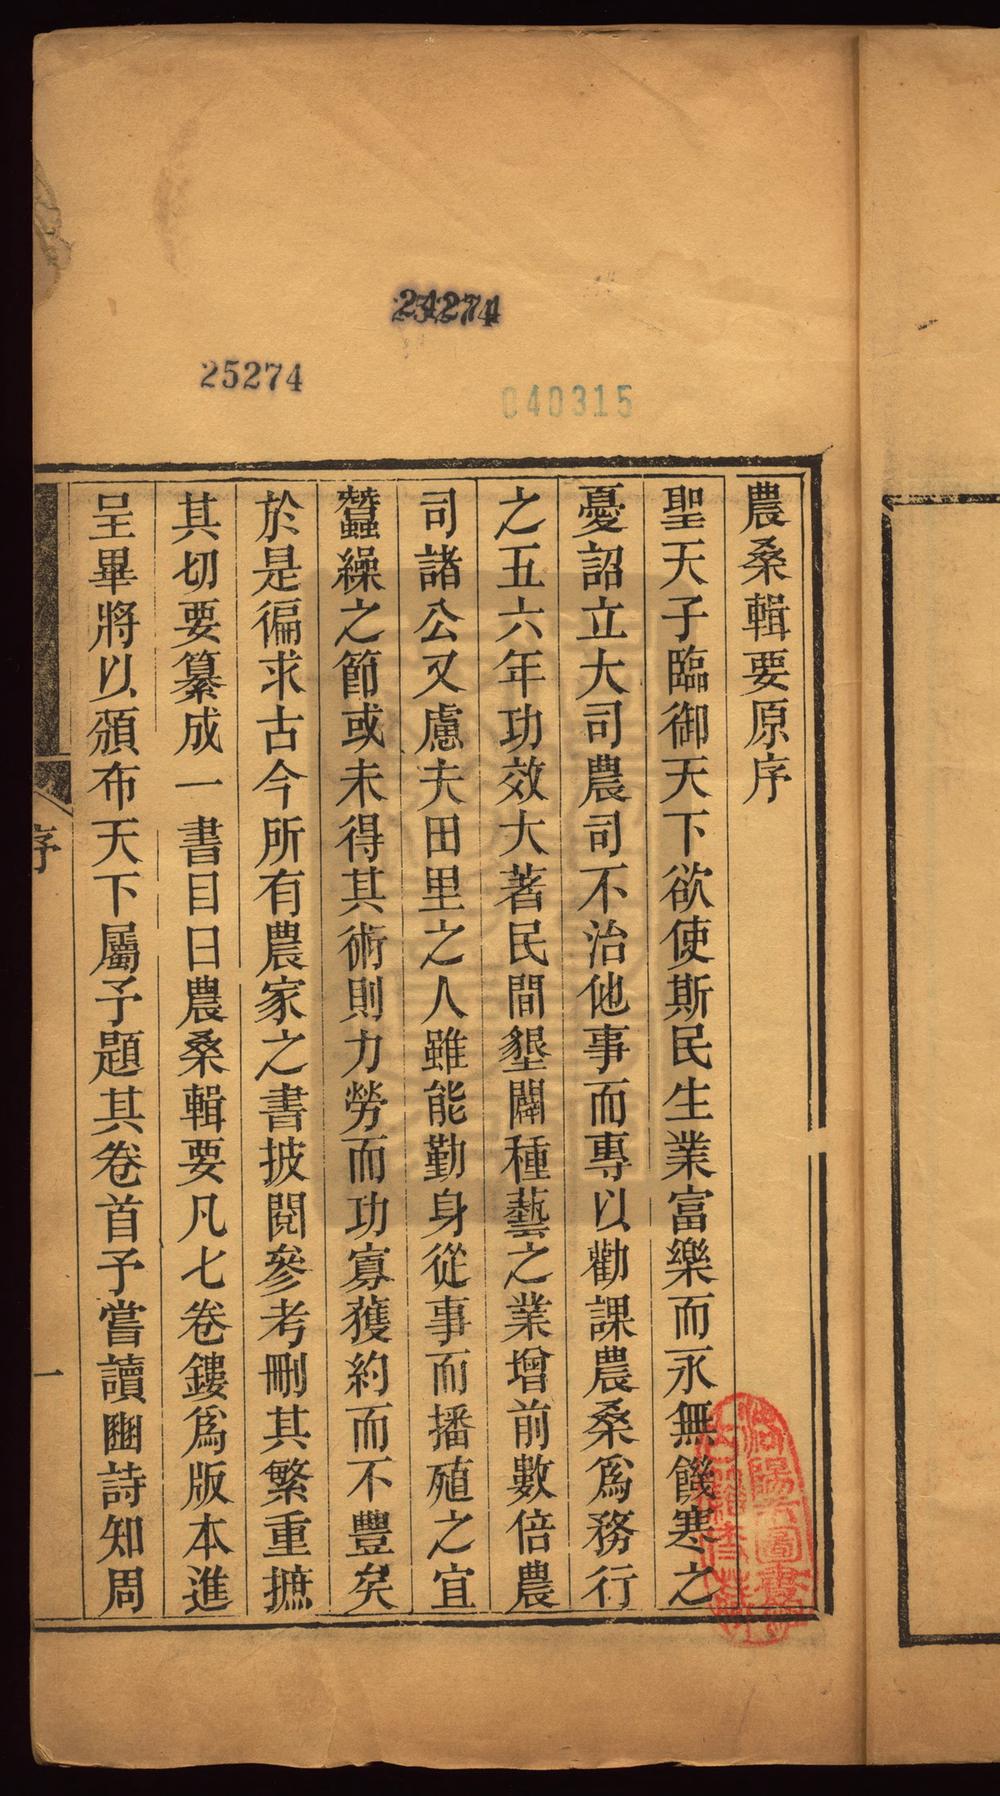 24274
25274
040315
農桑輯要原序
聖天子臨御天下欲使斯民生業富樂而永無饑寒之
憂詔立大司農司不治他事而專以勸課農桑爲務行
之五六年功效大著民間墾闢種藝之業增前數倍農
司諸公又慮夫田里之人雖能勤身從事而播殖之宜
蠶繰之節或未得其術則力勞而功寡獲約而不豐矣
於是徧求古今所有農家之書披閱參考刪其繁重摭
其切要纂成一書目曰農桑輯要凡七卷鏤爲版本進
呈畢將以頒布天下屬予題其卷首予嘗讀豳詩知周
序
一